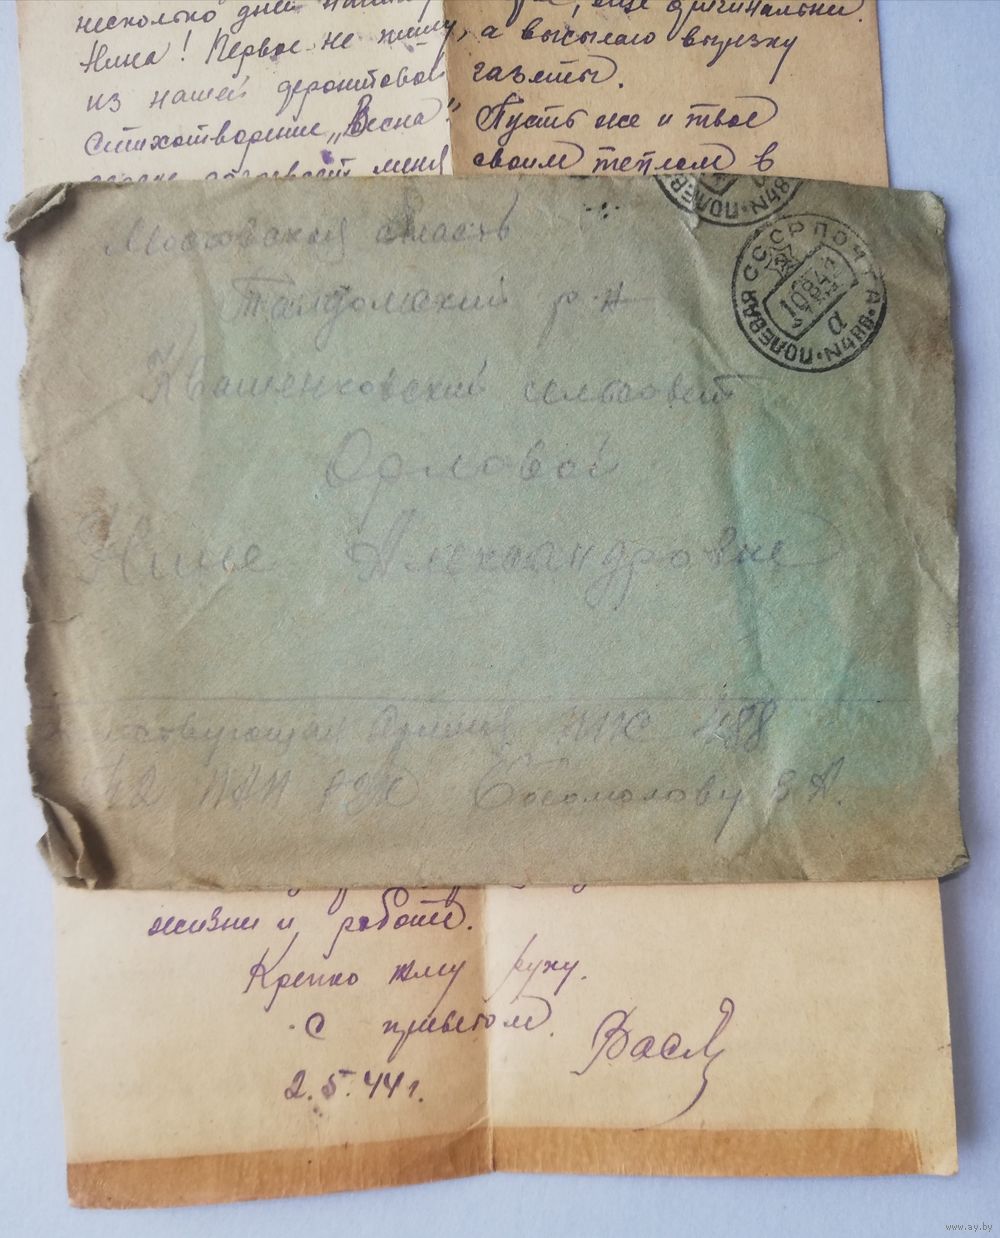 несколько дней
Нина! Первое не пишу, а высылаю вырезку
из нашей фронтовой газеты.
Стихотворение „Весна“. Пусть же и твое
меня своим теплом в
Московская область
Талдомский р-н
Квашенковский сельсовет
Орловой
Нине Александровне
Действующая Армия ППС 488
Богомолову В А.
СССР ПОЧТА
ПОЛЕВАЯ
N488
а
ПОЛЕВАЯ
N488
жизни и работе.
Крепко жму руку.
С приветом.
Вася
2.5.44 г.
www.ay.by